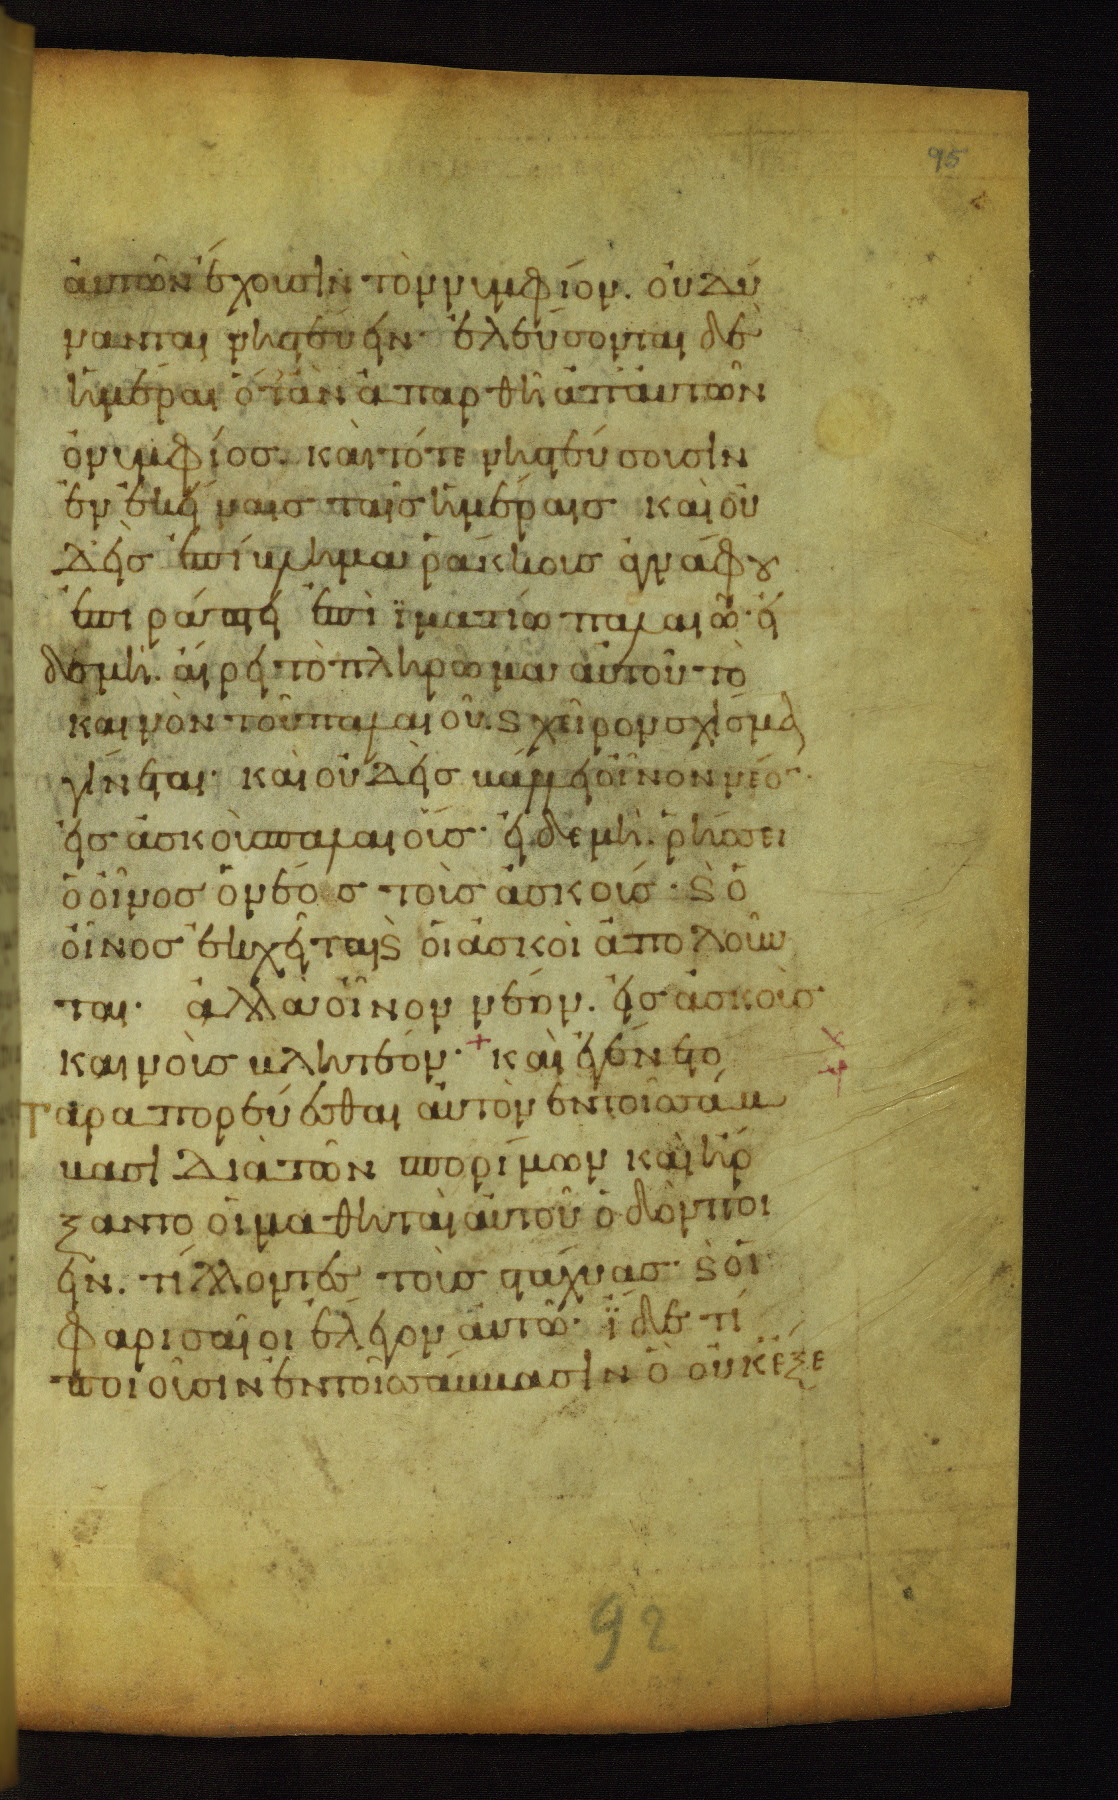 95
ἀυτῶν ἔχουσιν τὸν νυμφίον. οὐ δύ
νανται νηστεύειν· ἐλεύσονται δὲ
ἡμέραι ὅταν ἀπαρθῆ ἀπ' ἀυτῶν
ὁ νυμφίοσ. καὶ τότε νηστεύσουσιν
ἐν ἐκείναισ ταῖσ ἡμέραισ καὶ οὐ
δεὶσ ἐπίβλημα ῥάκκουσ ἀγνάφου
ἐπιράπτει ἐπὶ ϊματίω παλαιῶ· εἰ
δὲ μὴ. αἴρει τὸ πλήρωμα αὐτοῦ τὸ
καινὸν τοῦ παλαιοῦ. ϛ χεῖρον σχίσμα
γίνεται· καὶ οὐδεὶσ βάλλει οἶνον νέο
εἰσ ἀσκοὺσ παλαιούσ· εἰ δὲ μὴ. ῥήσσει
ὁ οἶνοσ ὁ νέοσ τοὺσ ἀσκούσ· ϛ ὁ
οἶνοσ ἐκχεῖται ϛ οἱ ἀσκοὶ ἀπολοῦν
ται· ἀλλὰ οἶνον νέον. εἰσ ἀσκοὺσ
καινοὺσ βλητέον· + καὶ ἐγένετο
Παραπορεύεσθαι αὐτὸν ἐν τοῖσ σάβ
βασι διὰ τῶν σπορίμων καὶ ἤρ
ξαντο οἱ μαθηταὶ αὐτοῦ ὁδὸν ποι
εῖν. τίλλοντεσ τοὺσ στάχυασ· ϛ οἱ
φαρισαῖοι ἔλεγον αὐτῶ· ϊδε τί
ποιοῦσιν ἐν τοῖσ σάββασιν ὃ οὐκ ἔξε
92